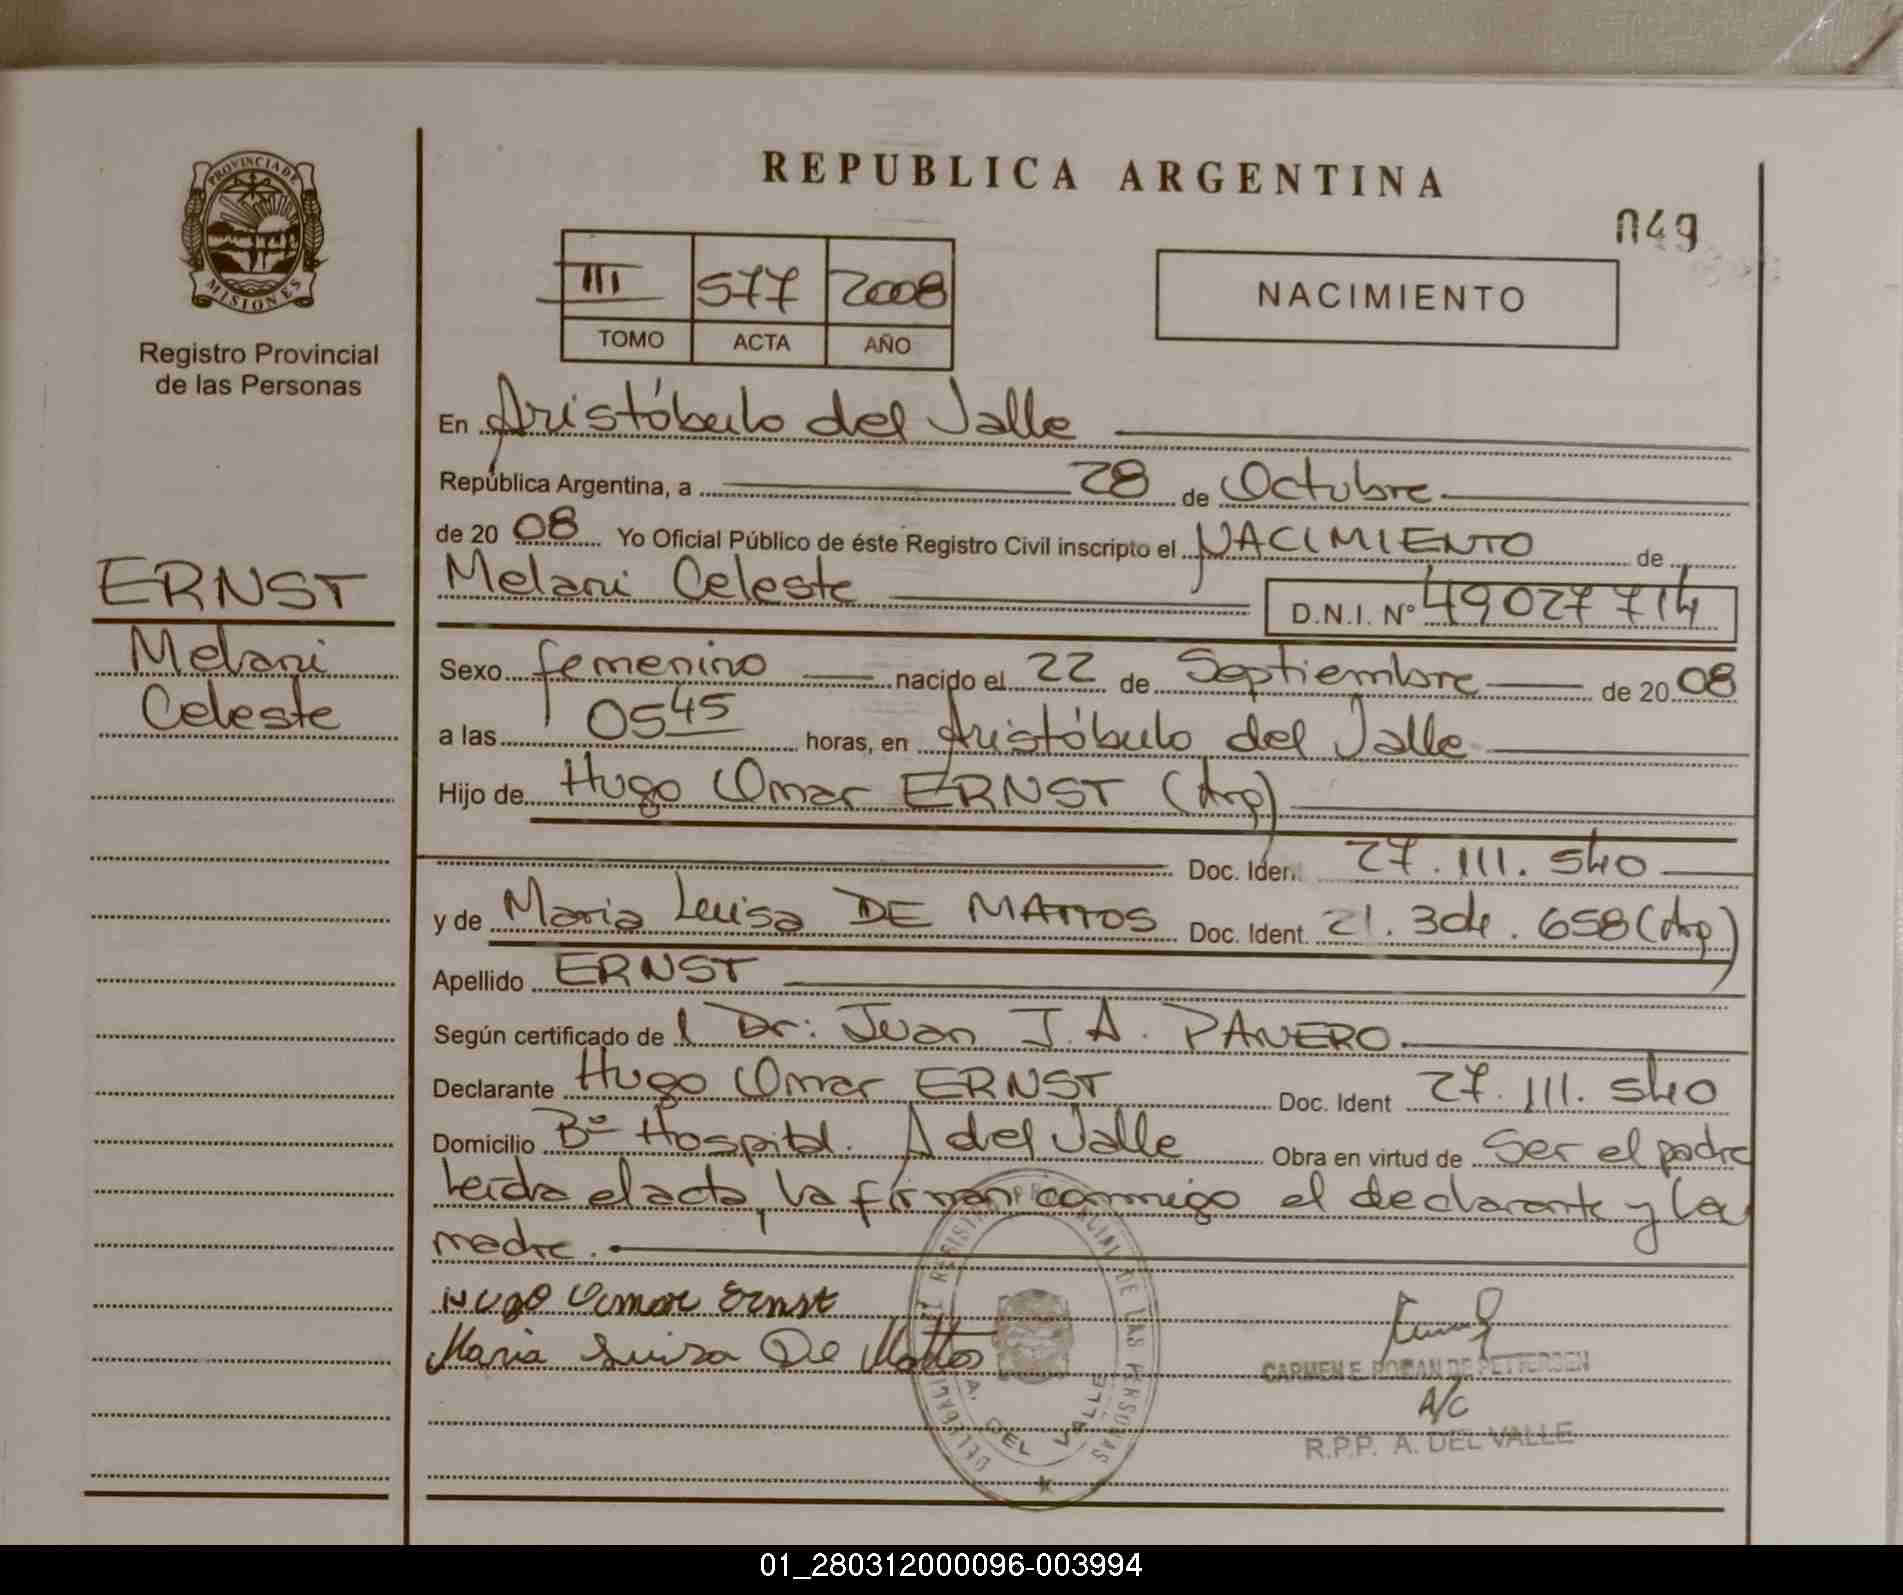 PROVINCIA DE
MISIONES
Registro Provincial
de las Personas
ERNST
Melani
Celeste
REPUBLICA ARGENTINA
049
III 577 2008
TOMO ACTA AÑO
NACIMIENTO
En Aristóbulo del Valle
República Argentina, a 28 de Octubre
de 20 08 Yo Oficial Público de éste Registro Civil inscripto el NACIMIENTO de
Melani Celeste D.N.I. Nº 49027714
Sexo femenino nacido el 22 de Septiembre de 20 08
a las 05 45 horas, en Aristóbulo del Valle
Hijo de Hugo Omar ERNST (Arg)
Doc. Iden. 27.111.540
y de Maria Luisa DE MATTOS Doc. Ident. 21.304.658 (Arg)
Apellido ERNST
Según certificado de l Dr: Juan J.A. PANERO
Declarante Hugo Omar ERNST Doc. Ident 27.111.540
Domicilio Bº Hospital. A del Valle Obra en virtud de Ser el padre
Leída el acta, la firman conmigo el declarante y la
madre.
Hugo Omar Ernst
Maria Luisa De Mattos
REGISTRO PROVINCIAL DE LAS PERSONAS
A. DEL VALLE
CARMEN E. ROMAN DE PETTERSEN
A/C
R.P.P. A. DEL VALLE
01_280312000096-003994